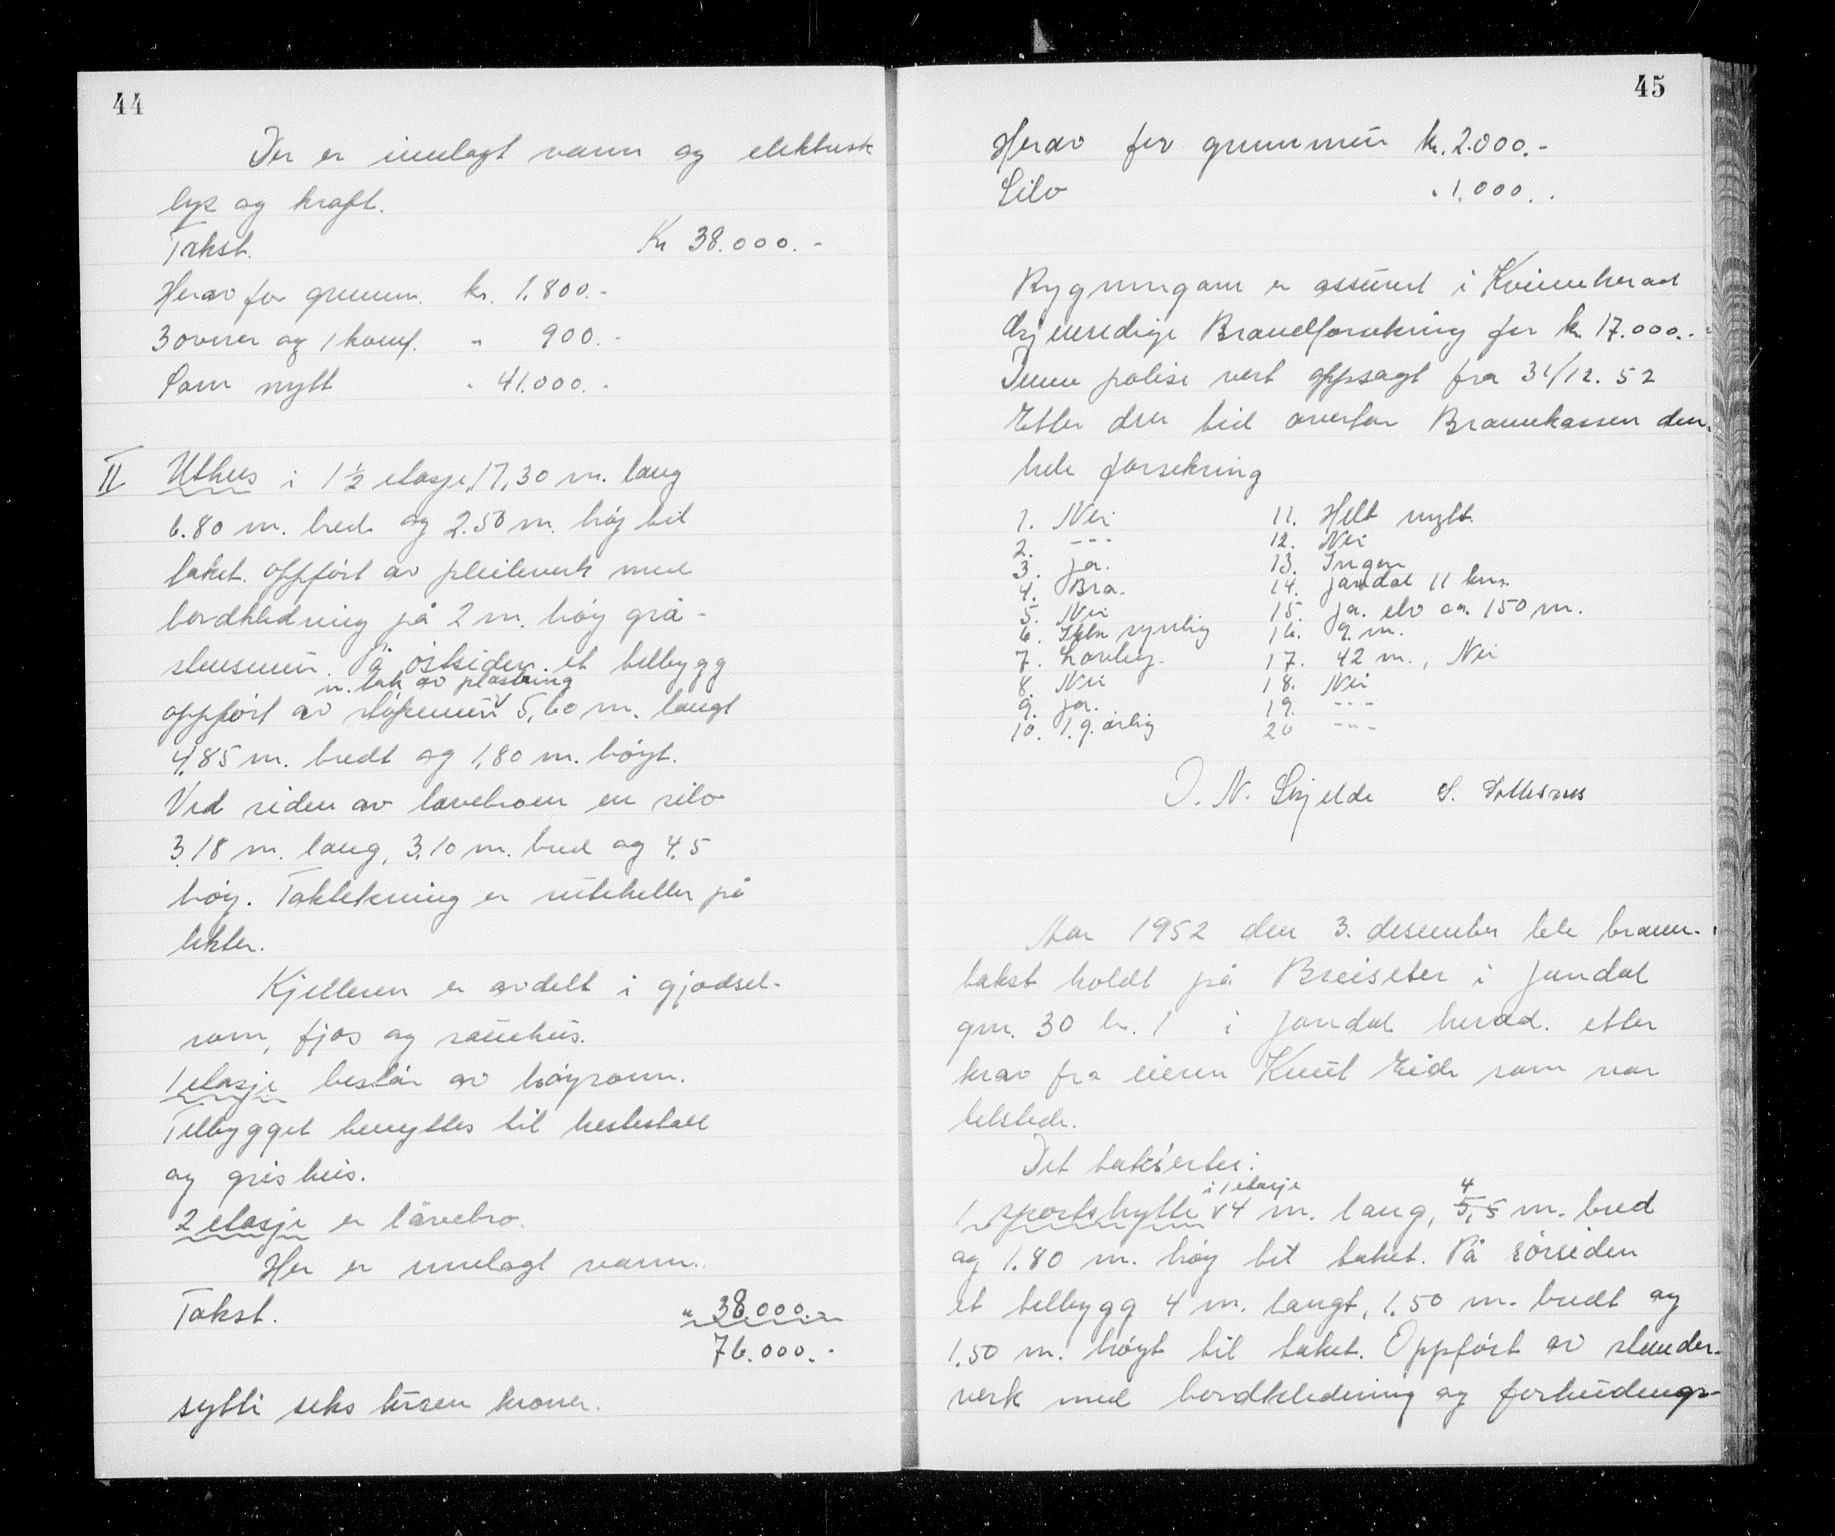 44
Der er innlagt vann og elektrisk
lys og kraft.
Takst. Kr 38.000.-
Herav for grunnm. kr. 1,800.-
3 ovner og 1 komf. " 900.-
Som nytt " 41.000.-
II Uthus i 1 1/2 etasje, 17,30 m. lang
6.80 m. bred og 2.50 m. høy til
taket. Oppført av pleileverk med
bordkledning på 2 m. høy grå-
steinsmur. På østsiden et tilbygg
m. tak av plastring
oppført av støpemur 5,60 m. langt
4,85 m. bredt og 1,80 m. høyt.
Ved siden av låvebroen en silo
3.18 m. lang, 3.10 m. bred og 4.5
høy. Taktekning er ruteheller på
lekter.
Kjelleren er avdelt i gjødsel-
rom, fjøs og sauehus.
1 etasje består av høyrom.
Tilbygget benyttes til hestestall
og grishus.
2 etasje er låvebro.
Her er innlagt vann.
Takst. " 38.000.-
76.000.-
sytti seks tusen kroner.
45
Herav for grunnmur kr. 2.000.-
Silo " 1.000.-
Bygningane er assurert i Kvinnherad
Gjensidige Brandforsikring for kr 17.000.-
Denne polise vert oppsagt fra 31/12. 52
Etter den tid overtar Brannkassen den
hele forsikring
1. Nei 11. Helt nytt.
2. --- 12. Nei
3. Ja. 13. Ingen
4. Bra. 14. Jondal 11 km.
5. Nei 15. Ja. elv ca. 150 m.
6. Ikke synlig 16. 9 m.
7. Lovleg. 17. 42 m., Nei
8. Nei 18. Nei
9. Ja. 19. ---
10. 1. g. årlig 20 ---
O. N. Skjelde S. Solesnes
Aar 1952 den 3. desember ble brann-
takst holdt på Breiseter i Jondal
gnr. 30 br. 1 i Jondal herad. etter
krav fra eieren Knut Eide som var
tilstede.
Det taksertes:
i 1 etasje 4
1 sportshytte 4 m. lang, 5,5 m. bred
og 1.80 m. høy til taket. På sørsiden
et tilbygg 4 m. langt, 1.50 m. bredt og
1.50 m. høyt til taket. Oppført av stender-
verk med bordkledning og forhudnings-